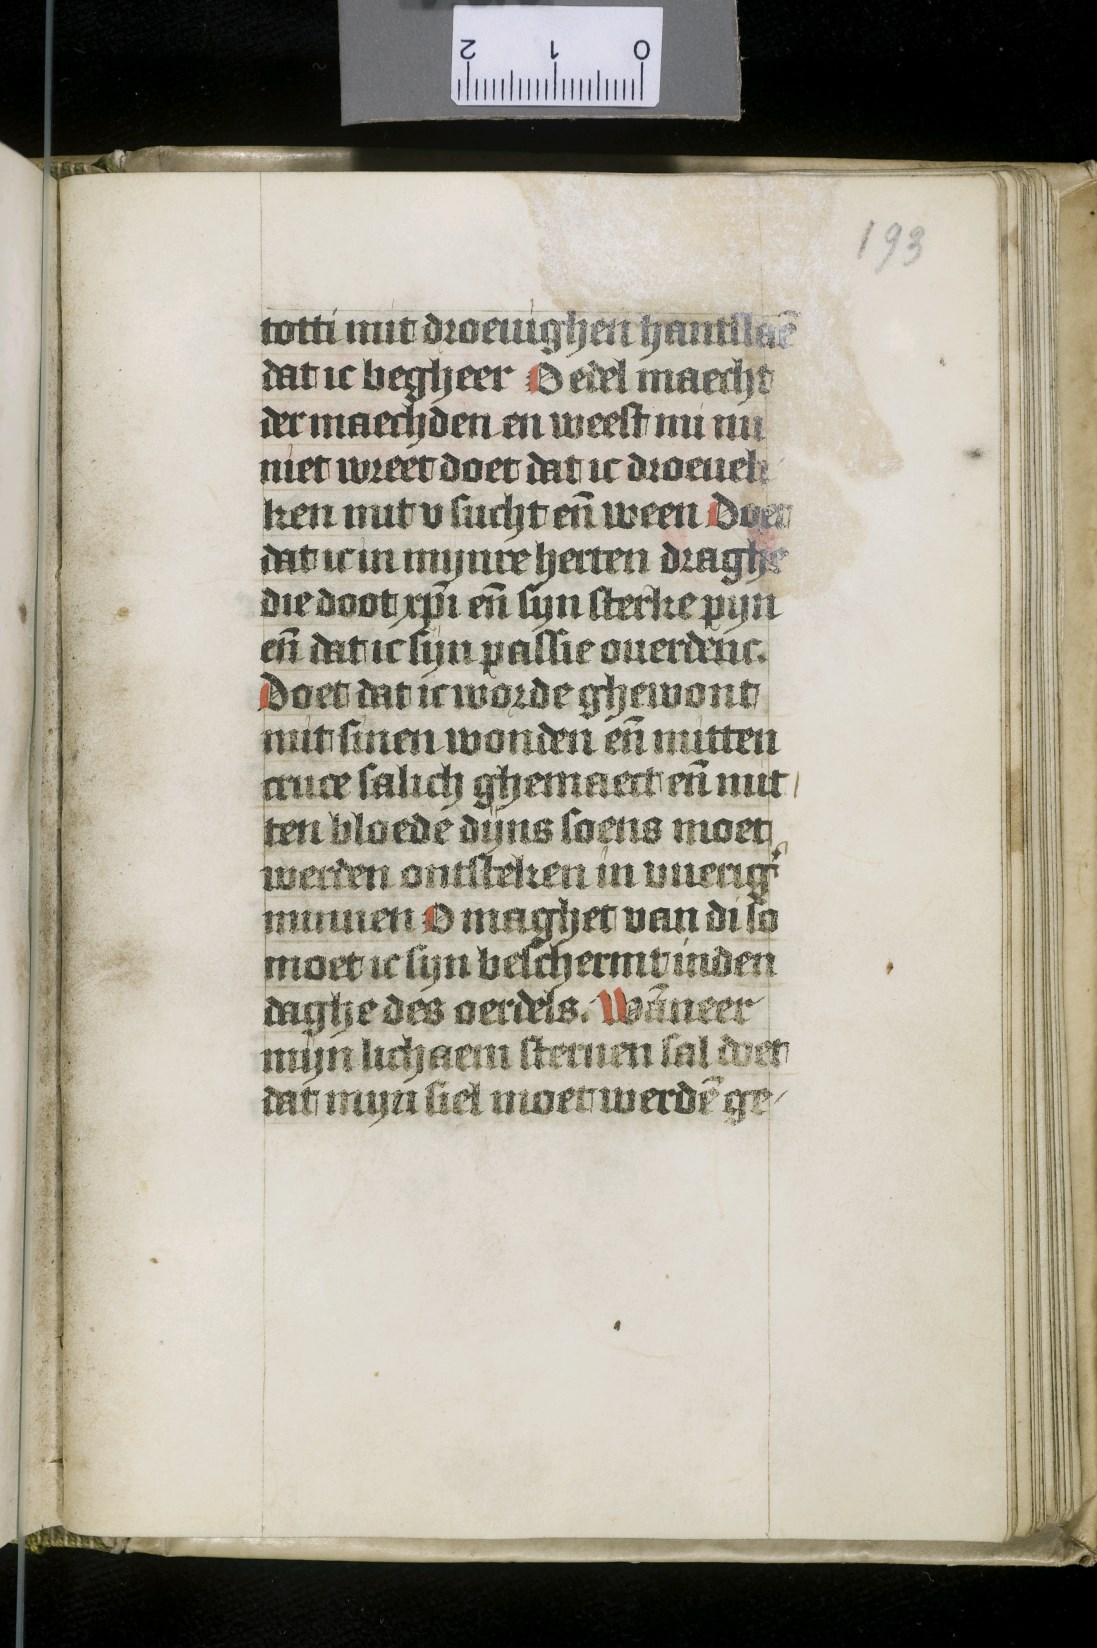 2 1 0
193
totti mit droeuighen hantslaē
dat ic begheer O edel maecht
der maechden en weest mi nu
niet wreet doet dat ic droeuelic
ken mit v sucht en̄ ween Doet
dat ic in mijnre herten draghe
die doot xp̄i en̄ sijn sterke pijn
en̄ dat ic sijn passie ouerdenc.
Doet dat ic worde ghewont
mit sinen wonden en̄ mitten
cruce salich ghemaect en̄ mit
ten bloede dijns soens moet
werden ontsteken in vuerigʳ
minnen O maghet van di so
moet ic sijn beschermt inden
daghe des oerdels. Wāneer
mijn lichaem steruen sal doet
dat mijn siel moet werdē ge